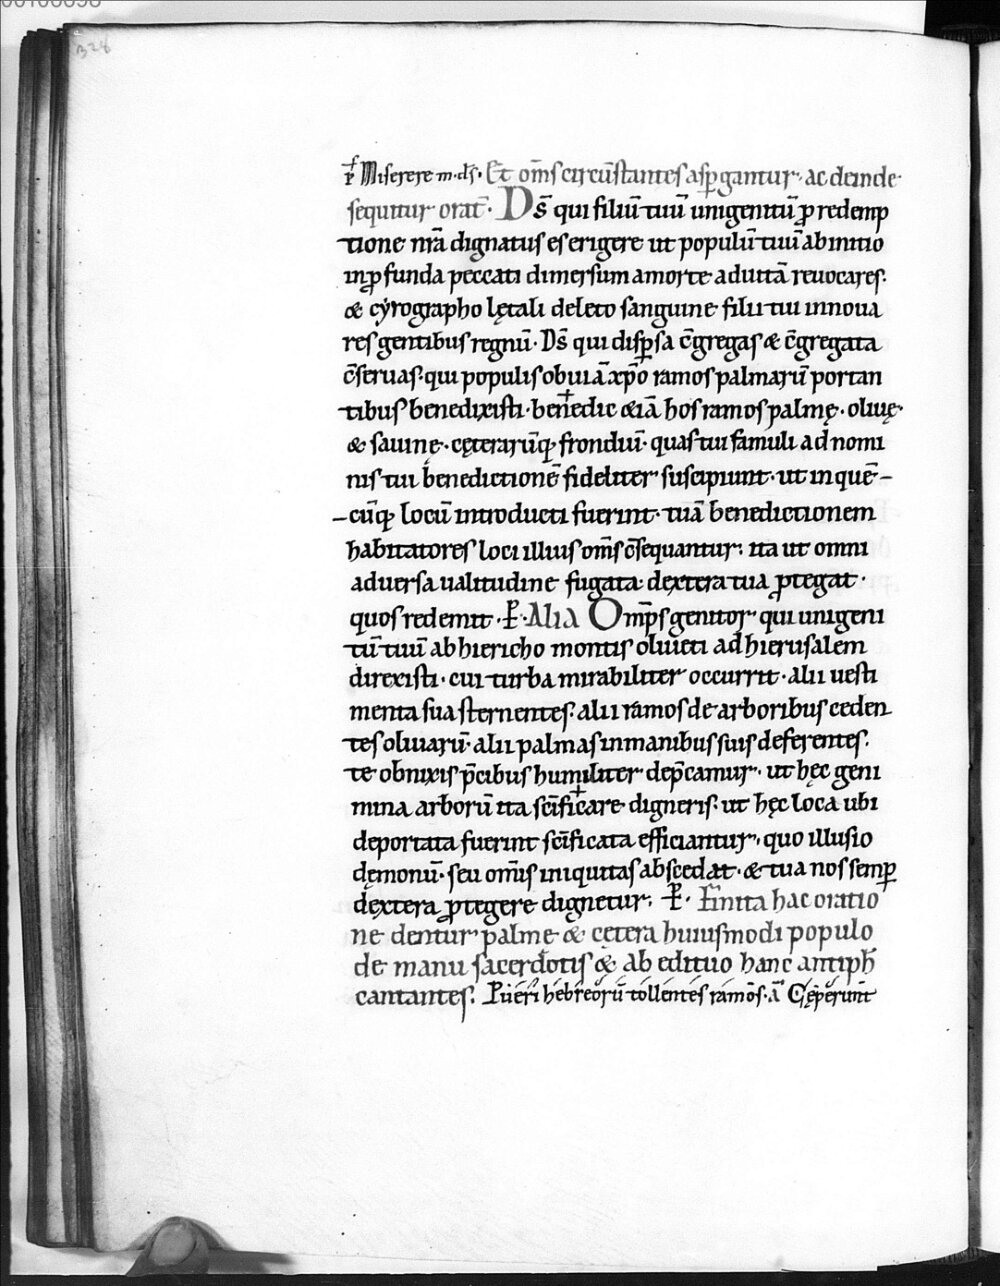 328
p̄s Miserere m. ds̄. Et om̄s circūstantes asp̱gantur. ac deinde
sequitur orat̄. Ds̄ qui filiū tuū unigenitū ꝓ redemp
tione nr̄a dignatus es erigere ut populū tuū ab initio
in ꝓfunda peccati dimersum a morte ad uitā reuocares.
& cẏrographo lętali deleto sanguine filii tui innoua
res gentibus regnū. Ds̄ qui disp̱sa c̄gregas & c̄gregata
c̄seruas. qui populis obuiā xp̄o ramos palmarū portan
tibus benedixisti. bene+dic etiā hos ramos palmę. oliuę.
& sauinę. cęterarūq; frondiū. quas tui famuli ad nomi
nis tui benedictionē fideliter suscipiunt. ut in quē-
-cūq; locū introducti fuerint. tuā benedictionem
habitatores loci illius om̄s c̄sequantur. ita ut omni
aduersa ualitudine fugata. dextera tua ꝓtegat.
quos redemit. P̱. Alia Omp̄s genitor qui unigeni
tū tuū ab hiericho montis oliueti ad hierusalem
direxisti. cui turba mirabiliter occurrit. alii uesti
menta sua sternentes. alii ramos de arboribus ceden
tes oliuarū. alii palmas in manibus suis deferentes.
te obnixis p̄cibus humiliter dep̄camur. ut hęc geni
mina arborū ita sc̄ifi+care digneris. ut hęc loca ubi
deportata fuerint sc̄ificata efficiantur. quo illusio
dęmonū. seu om̄is iniquitas abscedat. & tua nos semp̱
dextera ꝓtegere dignetur. P̱. Finita hac oratio
ne dentur palme & cętera huiusmodi populo
de manu sacerdotis & ab edituo hanc antiph̄
cantantes. Pueri hebreorū tollentes ramos. ā Cęperunt